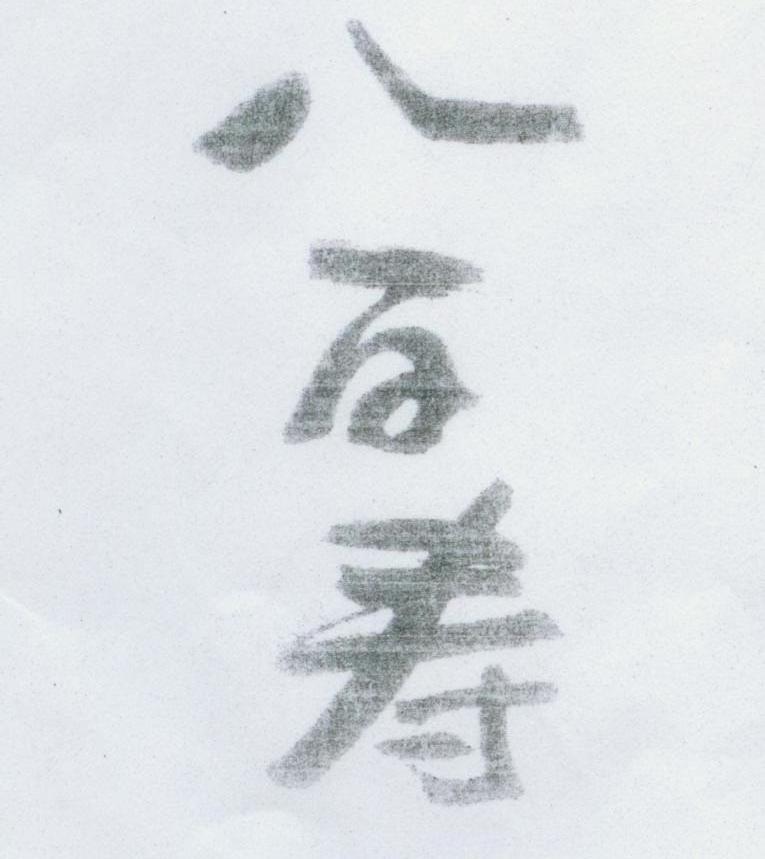 八百寿